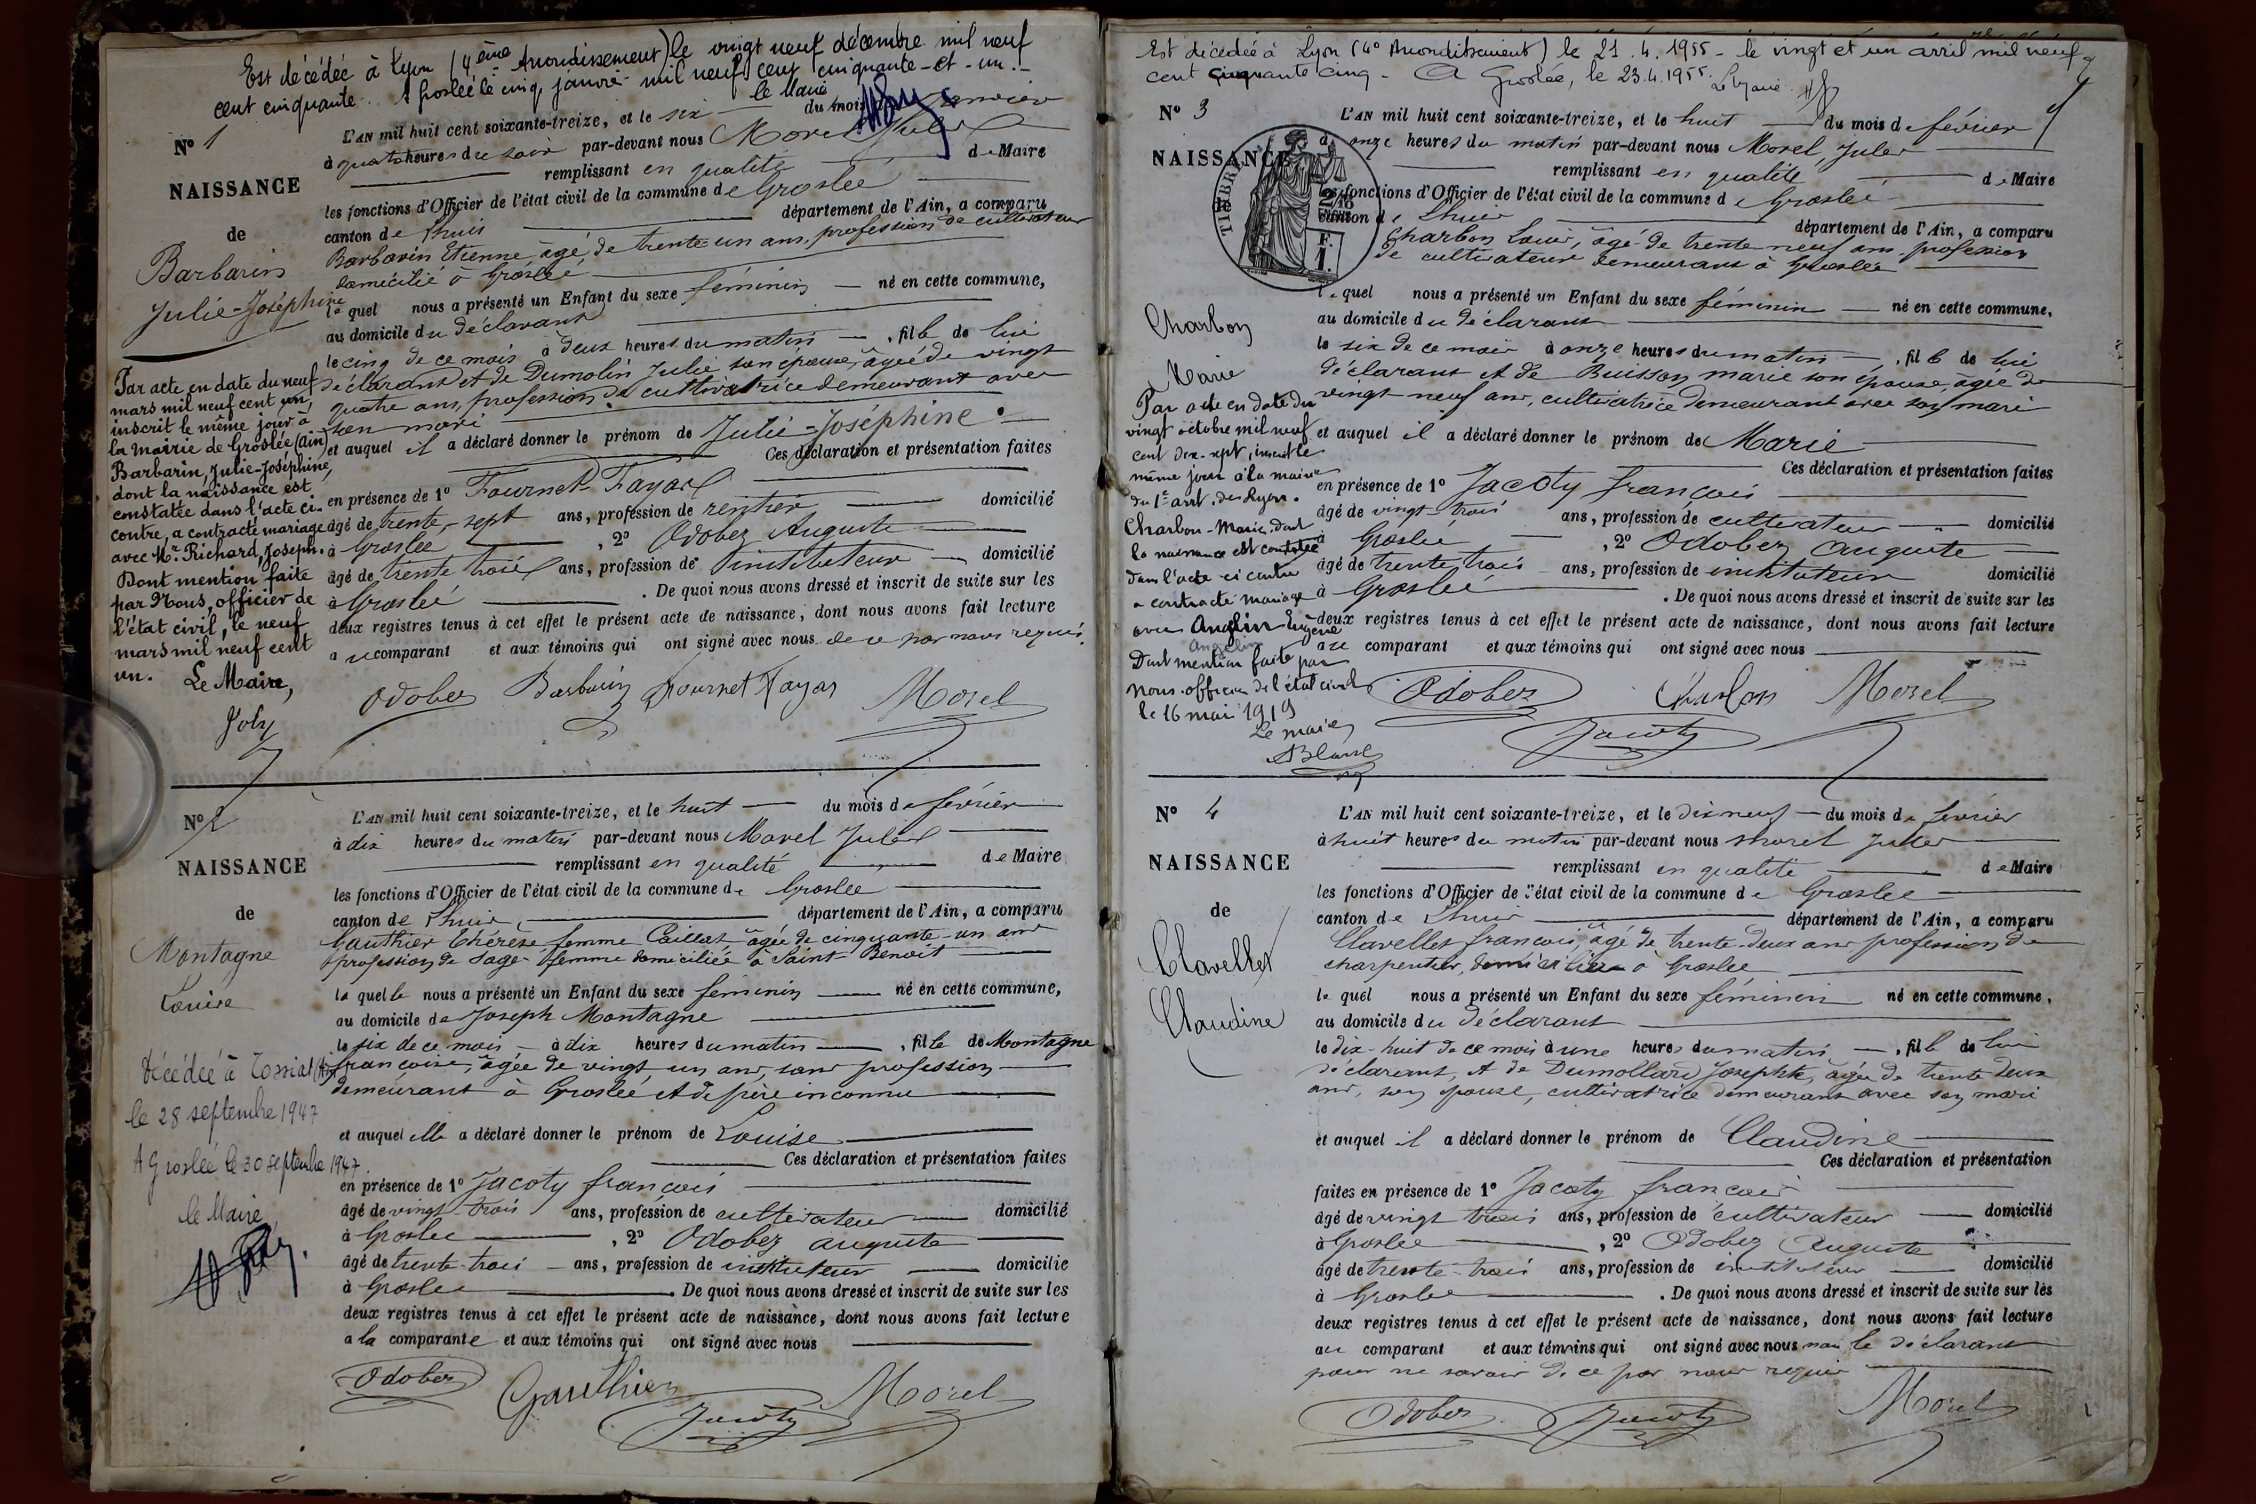 Est décédée à Lyon (4ème Arrondissement) le vingt neuf décembre mil neuf
cent cinquante. A Groslée le cinq janvier mil neuf cent cinquante-et-un.-
le Maire
N° 1
NAISSANCE
de
Barbarin
Julie-Joséphine
L'AN mil huit cent soixante-treize, et le six du mois de Janvier
à quatre heures du soir par-devant nous Morel Jules
remplissant en qualité de Maire
les fonctions d'Officier de l'état civil de la commune de Groslée
canton de Lhuis département de l'Ain, a comparu
Barbarin Etienne, âgé de trente-un ans, profession de cultivateur
domicilié à Groslée
lequel nous a présenté un Enfant du sexe féminin né en cette commune,
au domicile du déclarant
le cinq de ce mois à deux heures du matin, fille de lui
déclarant et de Dumolin Julie son épouse, âgée de vingt
quatre ans, profession de cultivatrice demeurant avec
son mari
et auquel il a déclaré donner le prénom de Julie-Joséphine.
Ces déclaration et présentation faites
en présence de 1° Fournet-Fayard
âgé de trente-sept ans, profession de rentier domicilié
à Groslée, 2° Odobez Auguste
âgé de trente trois ans, profession de instituteur domicilié
à Groslée. De quoi nous avons dressé et inscrit de suite sur les
deux registres tenus à cet effet le présent acte de naissance, dont nous avons fait lecture
au comparant et aux témoins qui ont signé avec nous de ce par nous requis
Odobez Barbarin Fournet Fayard Morel
Par acte en date du neuf
mars mil neuf cent un,
inscrit le même jour à
la Mairie de Groslée (Ain)
Barbarin, Julie-Joséphine,
dont la naissance est
constatée dans l'acte ci-
contre, a contracté mariage
avec Mr. Richard, Joseph.
Dont mention faite
par Nous, officier de
l'état civil, le neuf
mars mil neuf cent
un.
Le Maire,
Joly
N° 2
NAISSANCE
de
Montagne
Louise
L'AN mil huit cent soixante-treize, et le huit du mois de février
à dix heures du matin par-devant nous Morel Jules
remplissant en qualité de Maire
les fonctions d'Officier de l'état civil de la commune de Groslée
canton de Lhuis département de l'Ain, a comparu
Gauthier Thérèse femme Caillat âgée de cinquante-un ans
profession de Sage-femme domiciliée à Saint Benoit
laquelle nous a présenté un Enfant du sexe féminin né en cette commune,
au domicile de Joseph Montagne
le six de ce mois à dix heures du matin, fille de Montagne
françoise, âgée de vingt un ans, sans profession
demeurant à Groslée et de père inconnu
et auquel elle a déclaré donner le prénom de Louise
Ces déclaration et présentation faites
en présence de 1° Jacoty françois
âgé de vingt trois ans, profession de cultivateur domicilié
à Groslée, 2° Odobez auguste
âgé de trente-trois ans, profession de instituteur domicilié
à Groslée. De quoi nous avons dressé et inscrit de suite sur les
deux registres tenus à cet effet le présent acte de naissance, dont nous avons fait lecture
a la comparante et aux témoins qui ont signé avec nous
Odobez Gauthier Jacoty Morel
Décédée à Tossiat (Ain)
le 28 septembre 1947
A Groslée le 30 septembre 1947.
le Maire
Est décédée à Lyon (4° Arrondissement) le 21.4.1955 - le vingt et un avril mil neuf
cent cinquante cinq - A Groslée, le 23.4.1955. Le Maire
N° 3
NAISSANCE
TIMBRE
Charbon
Marie
L'AN mil huit cent soixante-treize, et le huit du mois de février
à onze heures du matin par-devant nous Morel Jules
remplissant en qualité de Maire
les fonctions d'Officier de l'état civil de la commune de Groslée
canton de Lhuis département de l'Ain, a comparu
Charbon Louis, âgé de trente neuf ans, profession
de cultivateur demeurant à Groslée
lequel nous a présenté un Enfant du sexe féminin né en cette commune,
au domicile du déclarant
le six de ce mois à onze heures du matin, fille de lui
déclarant et de Buisson marie son épouse, âgée de
vingt-neuf ans, cultivatrice demeurant avec son mari
et auquel il a déclaré donner le prénom de Marie
Ces déclaration et présentation faites
en présence de 1° Jacoty françois
âgé de vingt-trois ans, profession de cultivateur domicilié
à Groslée, 2° Odobez auguste
âgé de trente trois ans, profession de instituteur domicilié
à Groslée. De quoi nous avons dressé et inscrit de suite sur les
deux registres tenus à cet effet le présent acte de naissance, dont nous avons fait lecture
au comparant et aux témoins qui ont signé avec nous
Odobez Charbon Morel
Jacoty
Par acte en date du
vingt octobre mil neuf
cent dix-sept, inscrit le
même jour à la mairie
du 1er arrt. de Lyon.
Charbon-Marie, dont
la naissance est constatée
dans l'acte ci contre
a contracté mariage
avec Anglin Eugène
Angelin
Dont mention faite par
nous officier de l'état civil
le 16 mai 1919
Le maire
N° 4
NAISSANCE
de
Clavellet
Claudine
L'AN mil huit cent soixante-treize, et le dix neuf du mois de février
à huit heures du matin par-devant nous Morel Jules
remplissant en qualité de Maire
les fonctions d'Officier de l'état civil de la commune de Groslée
canton de Lhuis département de l'Ain, a comparu
Clavellet françois, âgé de trente-deux ans profession de
charpentier, domicilié à Groslée
lequel nous a présenté un Enfant du sexe féminin né en cette commune,
au domicile du déclarant
le dix-huit de ce mois à une heure du matin, fille de lui
déclarant, et de Dumollard Josephte, âgée de trente deux
ans, son épouse, cultivatrice demeurant avec son mari
et auquel il a déclaré donner le prénom de Claudine
Ces déclaration et présentation
faites en présence de 1° Jacoty françois
âgé de vingt trois ans, profession de cultivateur domicilié
à Groslée, 2° Odobez Auguste
âgé de trente-trois ans, profession de instituteur domicilié
à Groslée. De quoi nous avons dressé et inscrit de suite sur les
deux registres tenus à cet effet le présent acte de naissance, dont nous avons fait lecture
au comparant et aux témoins qui ont signé avec nous non le déclarant
pour ne savoir de ce par nous requis
Odobez Jacoty Morel